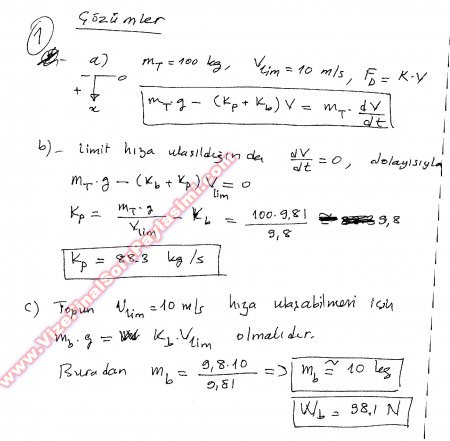 Çözümler
1
a) m_T = 100 kg, V_lim = 10 m/s, F_D = K·V
+ x 0
m_T·g - (K_p + K_b) V = m_T · dV/dt
b) - limit hıza ulaşıldığında dV/dt = 0, dolayısıyla
m_T·g - (K_b + K_p) V_lim = 0
K_p = m_T·g / V_lim - K_b = 100·9,81 / 9,8 9,8
K_p = 88.3 kg/s
c) Topun V_lim = 10 m/s hıza ulaşabilmesi için
m_b·g = K_b·V_lim olmalıdır.
Buradan m_b = 9,8·10 / 9,81 => m_b ≅ 10 kg
W_b = 98.1 N
www.VizeFinalSoruPaylasimi.com